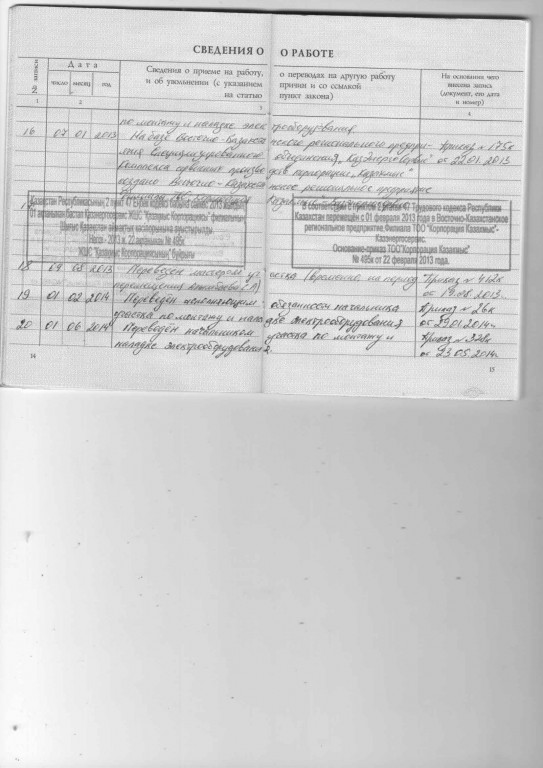 СВЕДЕНИЯ О РАБОТЕ
№ записи
Дата
число месяц год
Сведения о приеме на работу, о переводах на другую работу
и об увольнении (с указанием причин и со ссылкой
на статью пункт закона)
На основании чего
внесена запись
(документ, его дата
и номер)
1 2 3 4
по монтажу и наладке электрооборудования
16 07 01 2013 На базе Восточно-Казахстанского регионального предприятия Приказ № 175к
объединения "Казэнергосервис" от 22.01.2013
корпорации "Казахмыс"
создано Восточно-Казахстанское региональное предприятие
Қазақстан Республикасының
От ақпанынан бастап Қазақэнергосервис ЖШС "Қазақмыс Корпорациясы" филиалының
Шығыс Қазақстан аймақтық кәсіпорнына ауыстырылды.
2013 ж. 22 ақпандағы № 495к
ЖШС "Қазақмыс Корпорациясының" бұйрығы
В соответствии с пунктом 2 Трудового кодекса Республики
Казахстан перемещён с 01 февраля 2013 года в Восточно-Казахстанское
региональное предприятие Филиала ТОО "Корпорация Казахмыс"-
Казэнергосервис.
Основание-приказ ТОО "Корпорация Казахмыс"
№ 495к от 22 февраля 2013 года.
18 2013 Переведен мастером участка (временно, на период Приказ № 412к
перемещения от 19.08.2013.
19 01 02 2014 Переведён исполняющим обязанности начальника Приказ № 26к
участка по монтажу и наладке электрооборудования от 29.01.2014г.
20 01 06 2014 Переведён начальником участка по монтажу и Приказ № 328к
наладке электрооборудования. от 23.05.2014г.
14
15